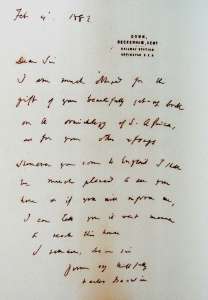 Feb 4th 1882
DOWN,
BECKENHAM, KENT.
RAILWAY STATION
ORPINGTON S.E.R.
Dear Sir
I am much obliged for the
gift of your beautifully got-up book
on the conchology of S. Africa,
as for your other essays
Whenever you come to England I shall
be much pleased to see you
here & if you will inform me,
I can tell you the best means
to reach this house
I remain, dear sir
yours faithfully
Charles Darwin